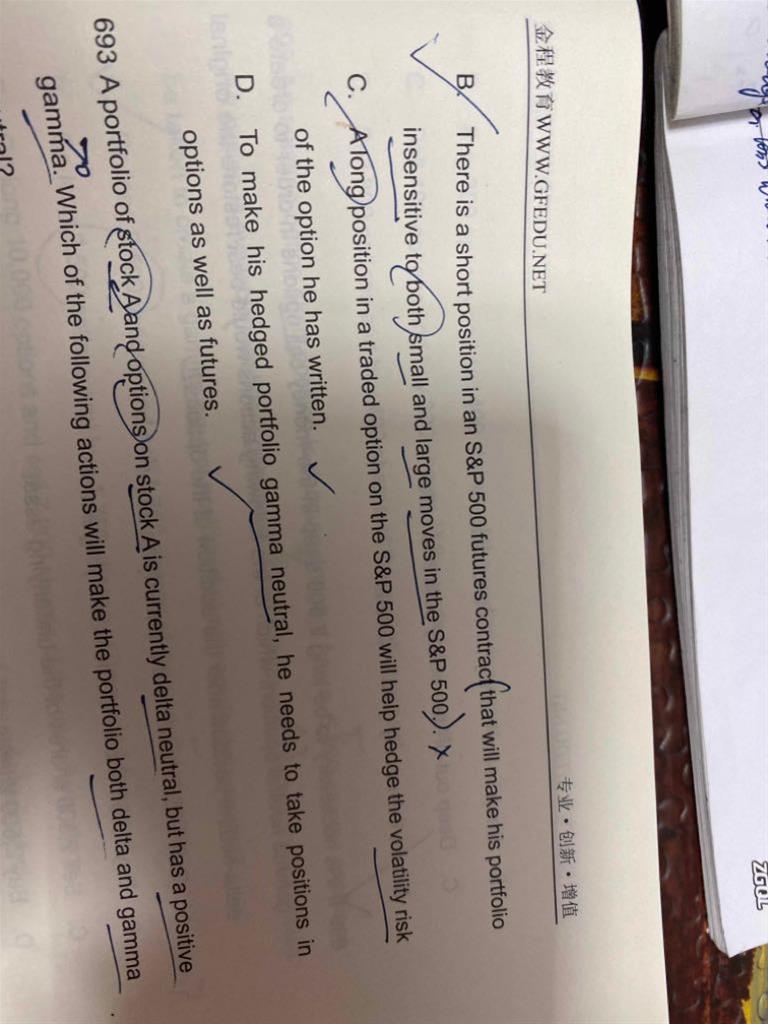 金程教育WWW.GFEDU.NET 专业·创新·增值
B. There is a short position in an S&P 500 futures contract that will make his portfolio
insensitive to both small and large moves in the S&P 500.
C. A long position in a traded option on the S&P 500 will help hedge the volatility risk
of the option he has written.
D. To make his hedged portfolio gamma neutral, he needs to take positions in
options as well as futures.
693 A portfolio of stock A and options on stock A is currently delta neutral, but has a positive
gamma. Which of the following actions will make the portfolio both delta and gamma